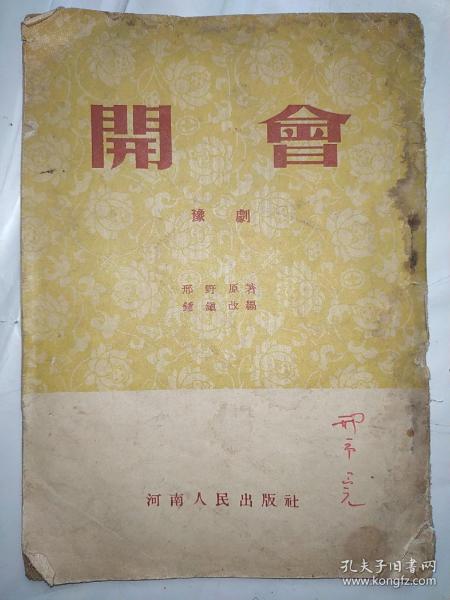 開會
豫劇
邢野 原著
鍾鎮 改編
河南人民出版社
孔夫子旧书网
www.kongfz.com